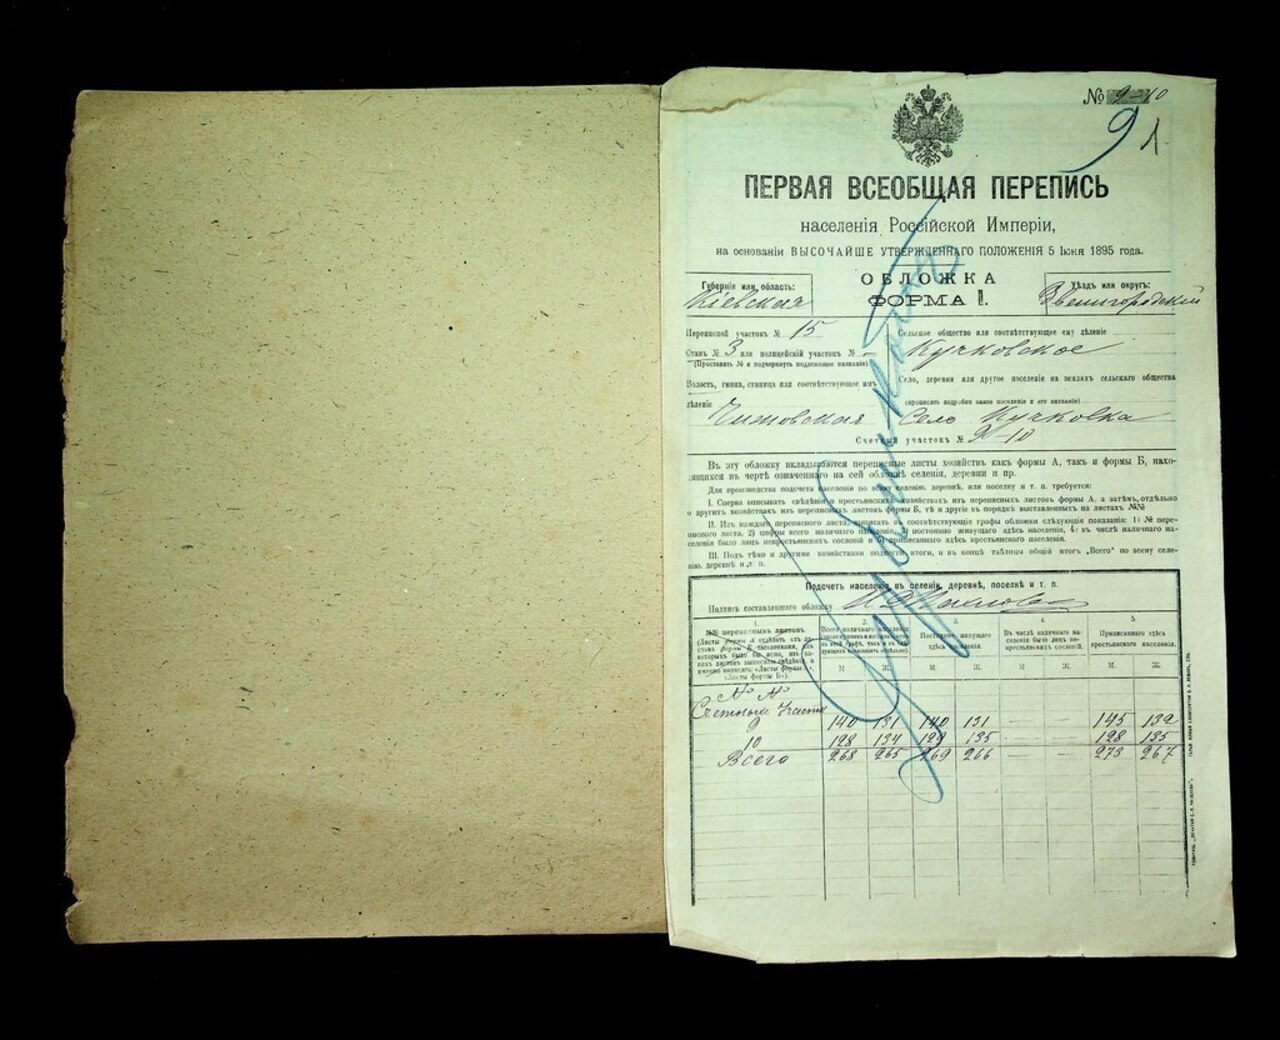 № 9-10
9 1
ПЕРВАЯ ВСЕОБЩАЯ ПЕРЕПИСЬ
населенія Россійской Имперіи,
на основаніи ВЫСОЧАЙШЕ УТВЕРЖДЕННАГО ПОЛОЖЕНІЯ 5 Іюня 1895 года.
ОБЛОЖКА
ФОРМА II.
Губернія или область:
Кіевская
Уѣздъ или округъ:
Звенигородскій
Переписной участокъ № 15
Станъ № 3 или полицейскій участокъ № –
(Проставить № и подчеркнуть подлежащее названіе)
Волость, гмина, станица или соотвѣтствующее имъ
дѣленіе
Чижовская
Сельское общество или соотвѣтствующее ему дѣленіе
Кучковское
Село, деревня или другое поселеніе на земляхъ сельскаго общества
(прописать подробно какое поселеніе и его названіе)
Село Кучковка
Счетный участокъ № 9-10
Въ эту обложку вкладываются переписные листы хозяйствъ какъ формы А, такъ и формы Б, нахо-
дящихся въ чертѣ означеннаго на сей обложкѣ селенія, деревни и пр.
Для производства подсчета населенія по всему селенію, деревнѣ, или поселку и т. п. требуется:
I. Сперва вписывать свѣдѣнія о крестьянскихъ хозяйствахъ изъ переписныхъ листовъ формы А, а затѣмъ, отдѣльно
о другихъ хозяйствахъ изъ переписныхъ листовъ формы Б, тѣ и другіе въ порядкѣ выставленныхъ на листахъ №№
II. Изъ каждаго переписнаго листа, вписать въ соотвѣтствующія графы обложки слѣдующія показанія: 1) № пере-
писного листа, 2) цифры всего наличнаго населенія, 3) постоянно живущаго здѣсь населенія, 4) въ числѣ наличнаго на-
селенія было лицъ некрестьянскихъ сословій и 5) приписаннаго здѣсь крестьянскаго населенія.
III. Подъ тѣми и другими хозяйствами подвести итоги, и въ концѣ таблицы общій итогъ „Всего“ по всему селе-
нію, деревнѣ и т. п.
Подсчетъ населенія въ селеніи, деревнѣ, поселкѣ и т. п.
Подпись составлявшаго обложку
1. 2. 3. 4. 5.
№№ переписныхъ листовъ.
Постоянно живущаго здѣсь населенія.
Въ числѣ наличнаго на-
селенія было лицъ не-
крестьянскихъ сословій.
Приписаннаго здѣсь
крестьянскаго населенія.
М. Ж. М. Ж. М. Ж. М. Ж.
№ №
Счетныхъ участк
9 140 131 140 131 — — 145 132
10 128 134 129 135 — — 128 135
Всего 268 265 269 266 — — 273 267